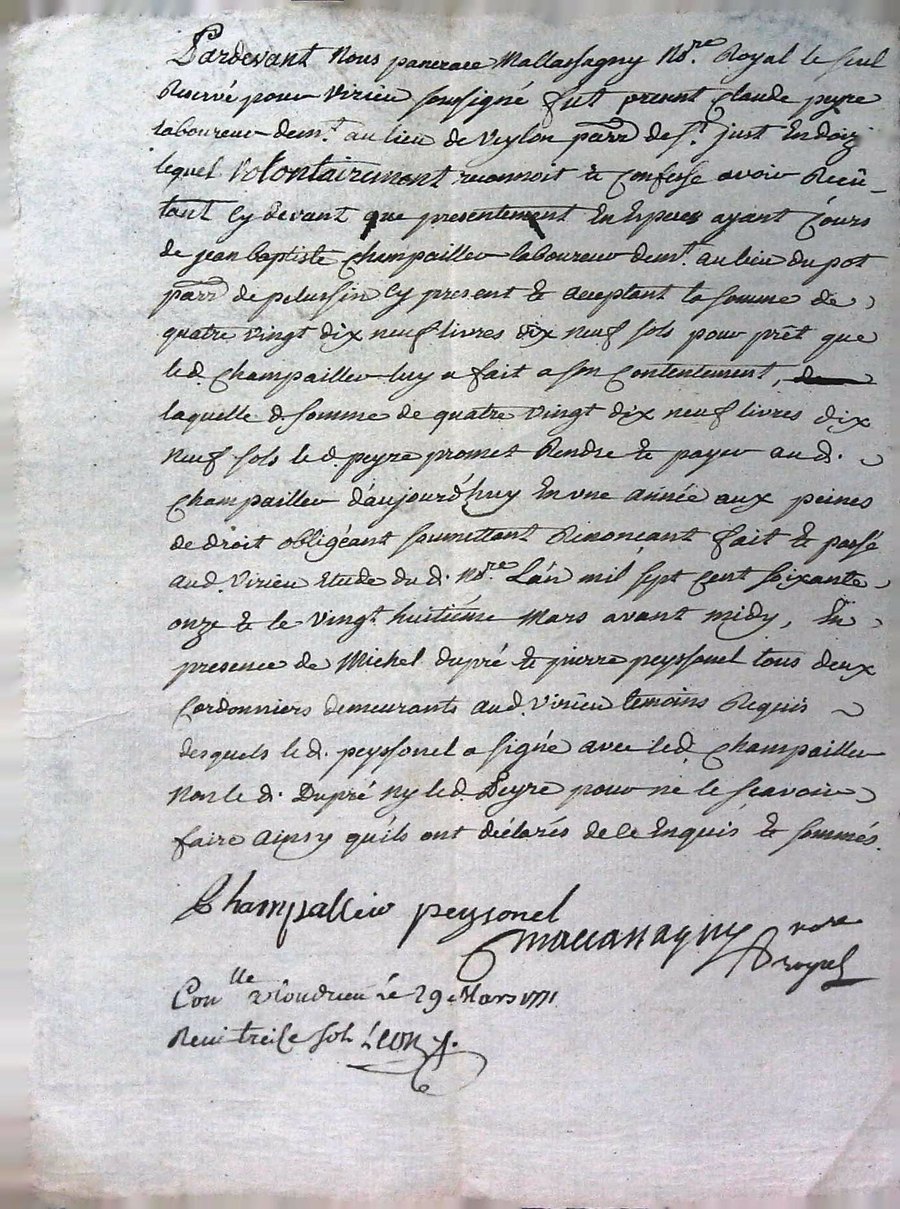 Pardevant Nous panerace Mallassagny No.re Royal le seul
Reservé pour Virieu soussigné fut present Claude peyre
laboureur dem.t au lieu de Veylon parr. de S.t just En doiz
lequel Volontairement reconnoit & Confesse avoir Recû
tant Cy devant que presentement En Espuces ayant Cours
de jean baptiste Champailler laboureur dem.t au lieu du pot
parr. de pelussin Cy present & aceptant la somme de
quatre vingt dix neuf livres dix neuf sols pour prêt que
led. Champailler luy a fait a son Contentement,
laquelle d. somme de quatre vingt dix neuf livres dix
neuf sols led. peyre promet Rendre & payer aud.
Champailler d'aujourd'huy En une année aux peines
de droit obligéant soumettant Renonçant fait & passé
aud. Virieu Etude du d. No.re L'an mil sept Cent soixante
onze & le vingt huitiéme Mars avant midy, En
presence de Michel dupré & pierre peyssonel tous deux
Cordonniers demeurants aud. Virieu temoins Requis
desquels led. peyssonel a signé avec led. Champailler
Non le d. Dupré Ny led. Peyre pour ne le sçavoir
faire ainsy qu'ils ont déclarés de ce Enquis & sommés.
Champallier peyssonel
Mallassagny no.re
royal
Con.lle a Condrieu le 29 Mars 1771
Reçu treize sols Leon